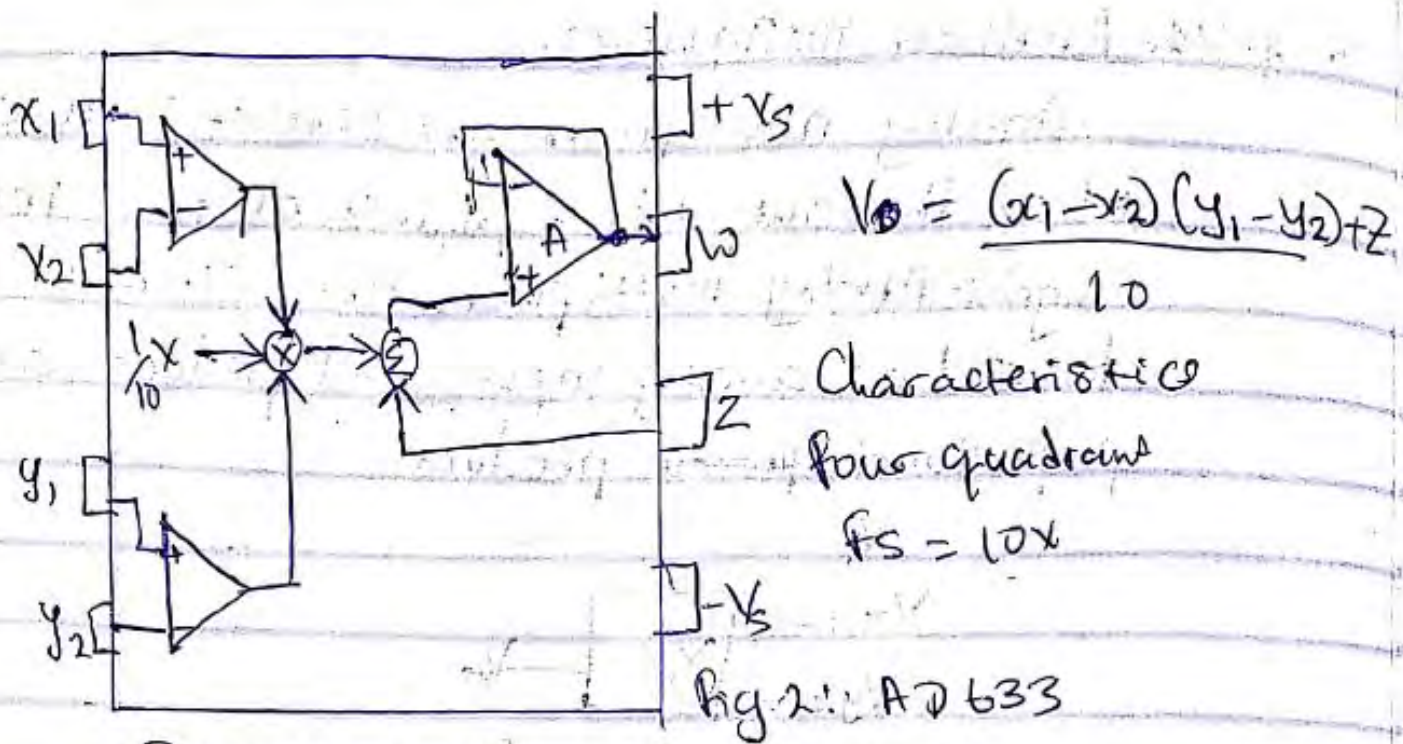 x1
+
-
x2
1/10 x
X
Σ
y1
+
y2
A
+
+Vs
W
Z
-Vs
= (x1-x2)(y1-y2)+Z
10
Characteristics
four quadrans
fs = 10x
fig 2: AD 633